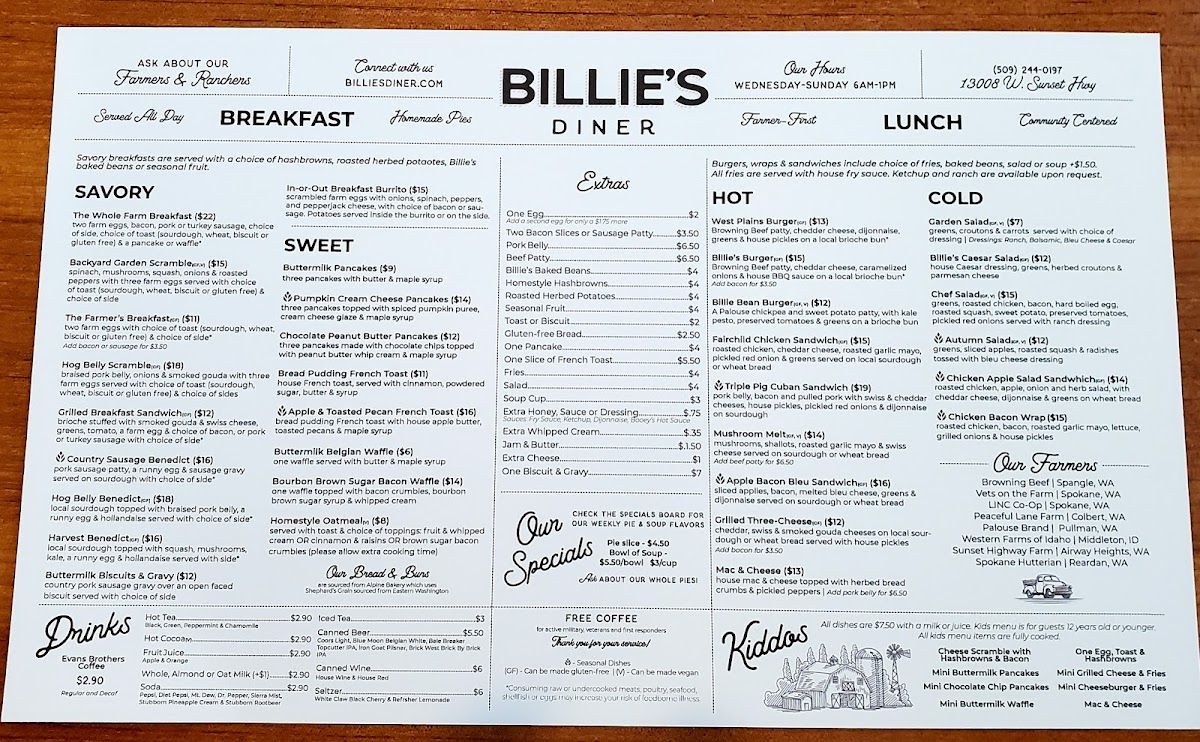 ASK ABOUT OUR
Farmers & Ranchers
Connect with us
BILLIESDINER.COM
BILLIE'S
DINER
Our Hours
WEDNESDAY-SUNDAY 6AM-1PM
(509) 244-0197
13008 W. Sunset Hwy
Served All Day
BREAKFAST
Homemade Pies
Farmer-First
LUNCH
Community Centered
Savory breakfasts are served with a choice of hashbrowns, roasted herbed potaotes, Billie's
baked beans or seasonal fruit.
SAVORY
The Whole Farm Breakfast ($22)
two farm eggs, bacon, pork or turkey sausage, choice
of side, choice of toast (sourdough, wheat, biscuit or
gluten free) & a pancake or waffle*
Backyard Garden Scramble(GF,V) ($15)
spinach, mushrooms, squash, onions & roasted
peppers with three farm eggs served with choice
of toast (sourdough, wheat, biscuit or gluten free) &
choice of side
The Farmer's Breakfast(GF) ($11)
two farm eggs with choice of toast (sourdough, wheat,
biscuit or gluten free) & choice of side*
Add bacon or sausage for $3.50
Hog Belly Scramble(GF) ($18)
braised pork belly, onions & smoked gouda with three
farm eggs served with choice of toast (sourdough,
wheat, biscuit or gluten free) & choice of sides
Grilled Breakfast Sandwich(GF) ($12)
brioche stuffed with smoked gouda & swiss cheese,
greens, tomato, a farm egg & choice of bacon, or pork
or turkey sausage with choice of side*
Country Sausage Benedict ($16)
pork sausage patty, a runny egg & sausage gravy
served on sourdough with choice of side*
Hog Belly Benedict(GF) ($18)
local sourdough topped with braised pork belly, a
runny egg & hollandaise served with choice of side*
Harvest Benedict(GF) ($16)
local sourdough topped with squash, mushrooms,
kale, a runny egg & hollandaise served with side*
Buttermilk Biscuits & Gravy ($12)
country pork sausage gravy over an open faced
biscuit served with choice of side
In-or-Out Breakfast Burrito ($15)
scrambled farm eggs with onions, spinach, peppers,
and pepperjack cheese, with choice of bacon or sau-
sage. Potatoes served inside the burrito or on the side.
SWEET
Buttermilk Pancakes ($9)
three pancakes with butter & maple syrup
Pumpkin Cream Cheese Pancakes ($14)
three pancakes topped with spiced pumpkin puree,
cream cheese glaze & maple syrup
Chocolate Peanut Butter Pancakes ($12)
three pancakes made with chocolate chips topped
with peanut butter whip cream & maple syrup
Bread Pudding French Toast ($11)
house French toast, served with cinnamon, powdered
sugar, butter & syrup
Apple & Toasted Pecan French Toast ($16)
bread pudding French toast with house apple butter,
toasted pecans & maple syrup
Buttermilk Belgian Waffle ($6)
one waffle served with butter & maple syrup
Bourbon Brown Sugar Bacon Waffle ($14)
one waffle topped with bacon crumbles, bourbon
brown sugar syrup & whipped cream
Homestyle Oatmeal(V) ($8)
served with toast & choice of toppings: fruit & whipped
cream OR cinnamon & raisins OR brown sugar bacon
crumbles (please allow extra cooking time)
Our Bread & Buns
are sourced from Alpine Bakery which uses
Shepherd's Grain sourced from Eastern Washington
Extras
One Egg $2
Add a second egg for only a $1.75 more
Two Bacon Slices or Sausage Patty $3.50
Pork Belly $6.50
Beef Patty $6.50
Billie's Baked Beans $4
Homestyle Hashbrowns $4
Roasted Herbed Potatoes $4
Seasonal Fruit $4
Toast or Biscuit $2
Gluten-free Bread $2.50
One Pancake $4
One Slice of French Toast $5.50
Fries $4
Salad $4
Soup Cup $3
Extra Honey, Sauce or Dressing $.75
Sauces: Fry Sauce, Ketchup, Dijonnaise, Booey's Hot Sauce
Extra Whipped Cream $.35
Jam & Butter $1.50
Extra Cheese $1
One Biscuit & Gravy $7
Our Specials
CHECK THE SPECIALS BOARD FOR
OUR WEEKLY PIE & SOUP FLAVORS
Pie slice - $4.50
Bowl of Soup -
$5.50/bowl $3/cup
Ask ABOUT OUR WHOLE PIES!
Burgers, wraps & sandwiches include choice of fries, baked beans, salad or soup +$1.50.
All fries are served with house fry sauce. Ketchup and ranch are available upon request.
HOT
West Plains Burger(GF) ($13)
Browning Beef patty, cheddar cheese, dijonnaise,
greens & house pickles on a local brioche bun*
Billie's Burger(GF) ($15)
Browning Beef patty, cheddar cheese, caramelized
onions & house BBQ sauce on a local brioche bun*
Add bacon for $3.50
Billie Bean Burger(GF, V) ($12)
A Palouse chickpea and sweet potato patty, with kale
pesto, preserved tomatoes & greens on a brioche bun
Fairchild Chicken Sandwich(GF) ($15)
roasted chicken, cheddar cheese, roasted garlic mayo,
pickled red onion & greens served on local sourdough
or wheat bread
Triple Pig Cuban Sandwich ($19)
pork belly, bacon and pulled pork with swiss & cheddar
cheeses, house pickles, pickled red onions & dijonnaise
on sourdough
Mushroom Melt(GF, V) ($14)
mushrooms, shallots, roasted garlic mayo & swiss
cheese served on sourdough or wheat bread
Add beef patty for $6.50
Apple Bacon Bleu Sandwich(GF) ($16)
sliced apples, bacon, melted bleu cheese, greens &
dijonnaise served on sourdough or wheat bread
Grilled Three-Cheese(GF) ($12)
cheddar, swiss & smoked gouda cheeses on local sour-
dough or wheat bread served with house pickles
Add bacon for $3.50
Mac & Cheese ($13)
house mac & cheese topped with herbed bread
crumbs & pickled peppers | Add pork belly for $6.50
COLD
Garden Salad(GF, V) ($7)
greens, croutons & carrots served with choice of
dressing | Dressings: Ranch, Balsamic, Bleu Cheese & Caesar
Billie's Caesar Salad(GF) ($12)
house Caesar dressing, greens, herbed croutons &
parmesan cheese
Chef Salad(GF, V) ($15)
greens, roasted chicken, bacon, hard boiled egg,
roasted squash, sweet potato, preserved tomatoes,
pickled red onions served with ranch dressing
Autumn Salad(GF, V) ($12)
greens, sliced apples, roasted squash & radishes
tossed with bleu cheese dressing
Chicken Apple Salad Sandwhich(GF) ($14)
roasted chicken, apple, onion and herb salad, with
cheddar cheese, dijonnaise & greens on wheat bread
Chicken Bacon Wrap ($15)
roasted chicken, bacon, roasted garlic mayo, lettuce,
grilled onions & house pickles
Our Farmers
Browning Beef | Spangle, WA
Vets on the Farm | Spokane, WA
LINC Co-Op | Spokane, WA
Peaceful Lane Farm | Colbert, WA
Palouse Brand | Pullman, WA
Western Farms of Idaho | Middleton, ID
Sunset Highway Farm | Airway Heights, WA
Spokane Hutterian | Reardan, WA
Drinks
Evans Brothers
Coffee
$2.90
Regular and Decaf
Hot Tea $2.90
Black, Green, Peppermint & Chamomile
Hot Cocoa $2.90
Fruit Juice $2.90
Apple & Orange
Whole, Almond or Oat Milk (+$1) $2.90
Soda $2.90
Pepsi, Diet Pepsi, Mt. Dew, Dr. Pepper, Sierra Mist,
Stubborn Pineapple Cream & Stubborn Rootbeer
Iced Tea $3
Canned Beer $5.50
Coors Light, Blue Moon Belgian White, Bale Breaker
Topcutter IPA, Iron Goat Pilsner, Brick West Brick By Brick
IPA
Canned Wine $6
House Wine & House Red
Seltzer $6
White Claw Black Cherry & Refrsher Lemonade
FREE COFFEE
for active military, veterans and first responders
Thank you for your service!
- Seasonal Dishes
(GF) - Can be made gluten-free | (V) - Can be made vegan
*Consuming raw or undercooked meats, poultry, seafood,
shellfish or eggs may increase your risk of foodborne illness.
Kiddos
All dishes are $7.50 with a milk or juice. Kids menu is for guests 12 years old or younger.
All kids menu items are fully cooked.
Cheese Scramble with
Hashbrowns & Bacon
Mini Buttermilk Pancakes
Mini Chocolate Chip Pancakes
Mini Buttermilk Waffle
One Egg, Toast &
Hashbrowns
Mini Grilled Cheese & Fries
Mini Cheeseburger & Fries
Mac & Cheese